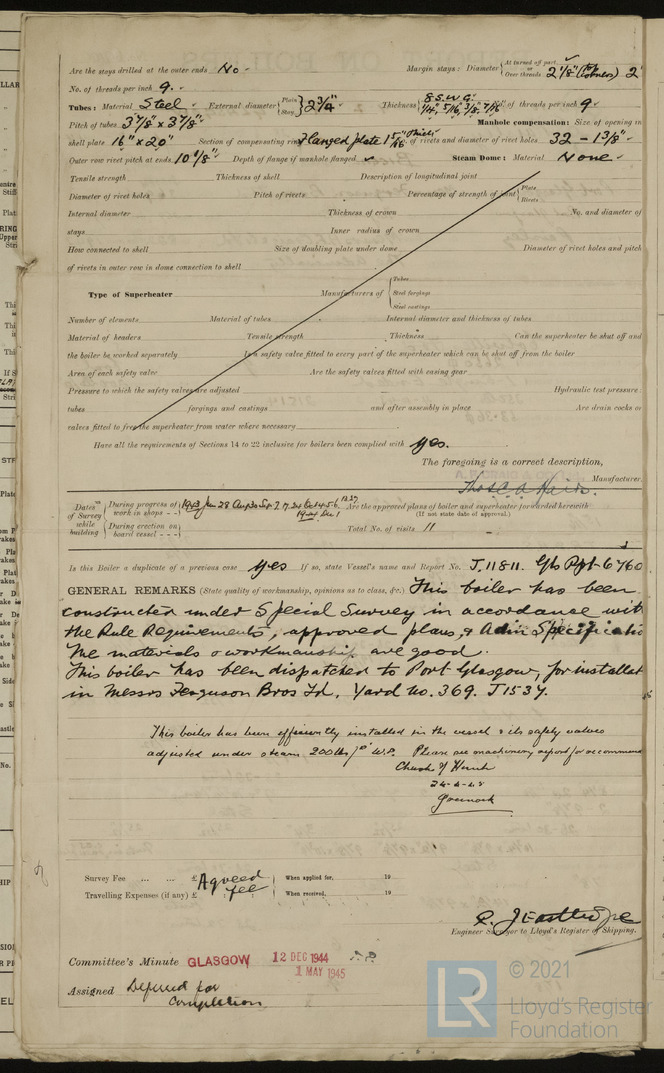 Are the stays drilled at the outer ends No. Margin stays: Diameter { At turned off part, or Over threads 2 1/8"
No. of threads per inch 9.
Tubes: Material Steel External diameter { Plain Stay } 2 3/4" Thickness { 8 S.W.G. 1/4, 5/16, 3/8, 7/16 No. of threads per inch 9
Pitch of tubes 3 7/8" x 3 7/8" Manhole compensation: Size of opening in
shell plate 16" x 20" Section of compensating ring Flanged plate 1 5/16" thick No. of rivets and diameter of rivet holes 32 - 1 3/8"
Outer row rivet pitch at ends 10 1/8" Depth of flange if manhole flanged Steam Dome: Material None
Tensile strength Thickness of shell Description of longitudinal joint
Diameter of rivet holes Pitch of rivets Percentage of strength of joint { Plate Rivets
Internal diameter Thickness of crown No. and diameter of
stays Inner radius of crown
How connected to shell Size of doubling plate under dome Diameter of rivet holes and pitch
of rivets in outer row in dome connection to shell
Type of Superheater Manufacturers of { Tubes Steel forgings Steel castings
Number of elements Material of tubes Internal diameter and thickness of tubes
Material of headers Tensile strength Thickness Can the superheater be shut off and
the boiler be worked separately Is a safety valve fitted to every part of the superheater which can be shut off from the boiler
Area of each safety valve Are the safety valves fitted with easing gear
Pressure to which the safety valves are adjusted Hydraulic test pressure:
tubes forgings and castings and after assembly in place Are drain cocks or
valves fitted to free the superheater from water where necessary
Have all the requirements of Sections 14 to 22 inclusive for boilers been complied with Yes.
The foregoing is a correct description,
Manufacturer.
Dates of Survey while building { During progress of work in shops - - 1943 Jun 28 Aug 30 Sep 7. 17. 24 Oct 4. 5. 6. 13. 27 1944 Dec 1 Are the approved plans of boiler and superheater forwarded herewith
During erection on board vessel - - - (If not state date of approval.)
Total No. of visits 11
Is this Boiler a duplicate of a previous case Yes If so, state Vessel's name and Report No. J.11811. Gls Rpt 6760
GENERAL REMARKS (State quality of workmanship, opinions as to class, &c.) This boiler has been
constructed under Special Survey in accordance with
the Rule Requirements, approved plans, & Adm Specificatio
The materials & workmanship are good.
This boiler has been dispatched to Port Glasgow, for installat
in Messrs Ferguson Bros Ltd, Yard No. 369. J1537.
This boiler has been efficiently installed in the vessel & its safety valves
adjusted under steam 200 lbs/sq" W.P. Please see machinery report for recommend
24-4-45
Greenock
Survey Fee ... ... £ Agreed fee When applied for, 19
Travelling Expenses (if any) £ When received, 19
Engineer Surveyor to Lloyd's Register of Shipping.
Committee's Minute GLASGOW 12 DEC 1944
1 MAY 1945
Assigned Deferred for
Completion
© 2021
LR Lloyd's Register
Foundation